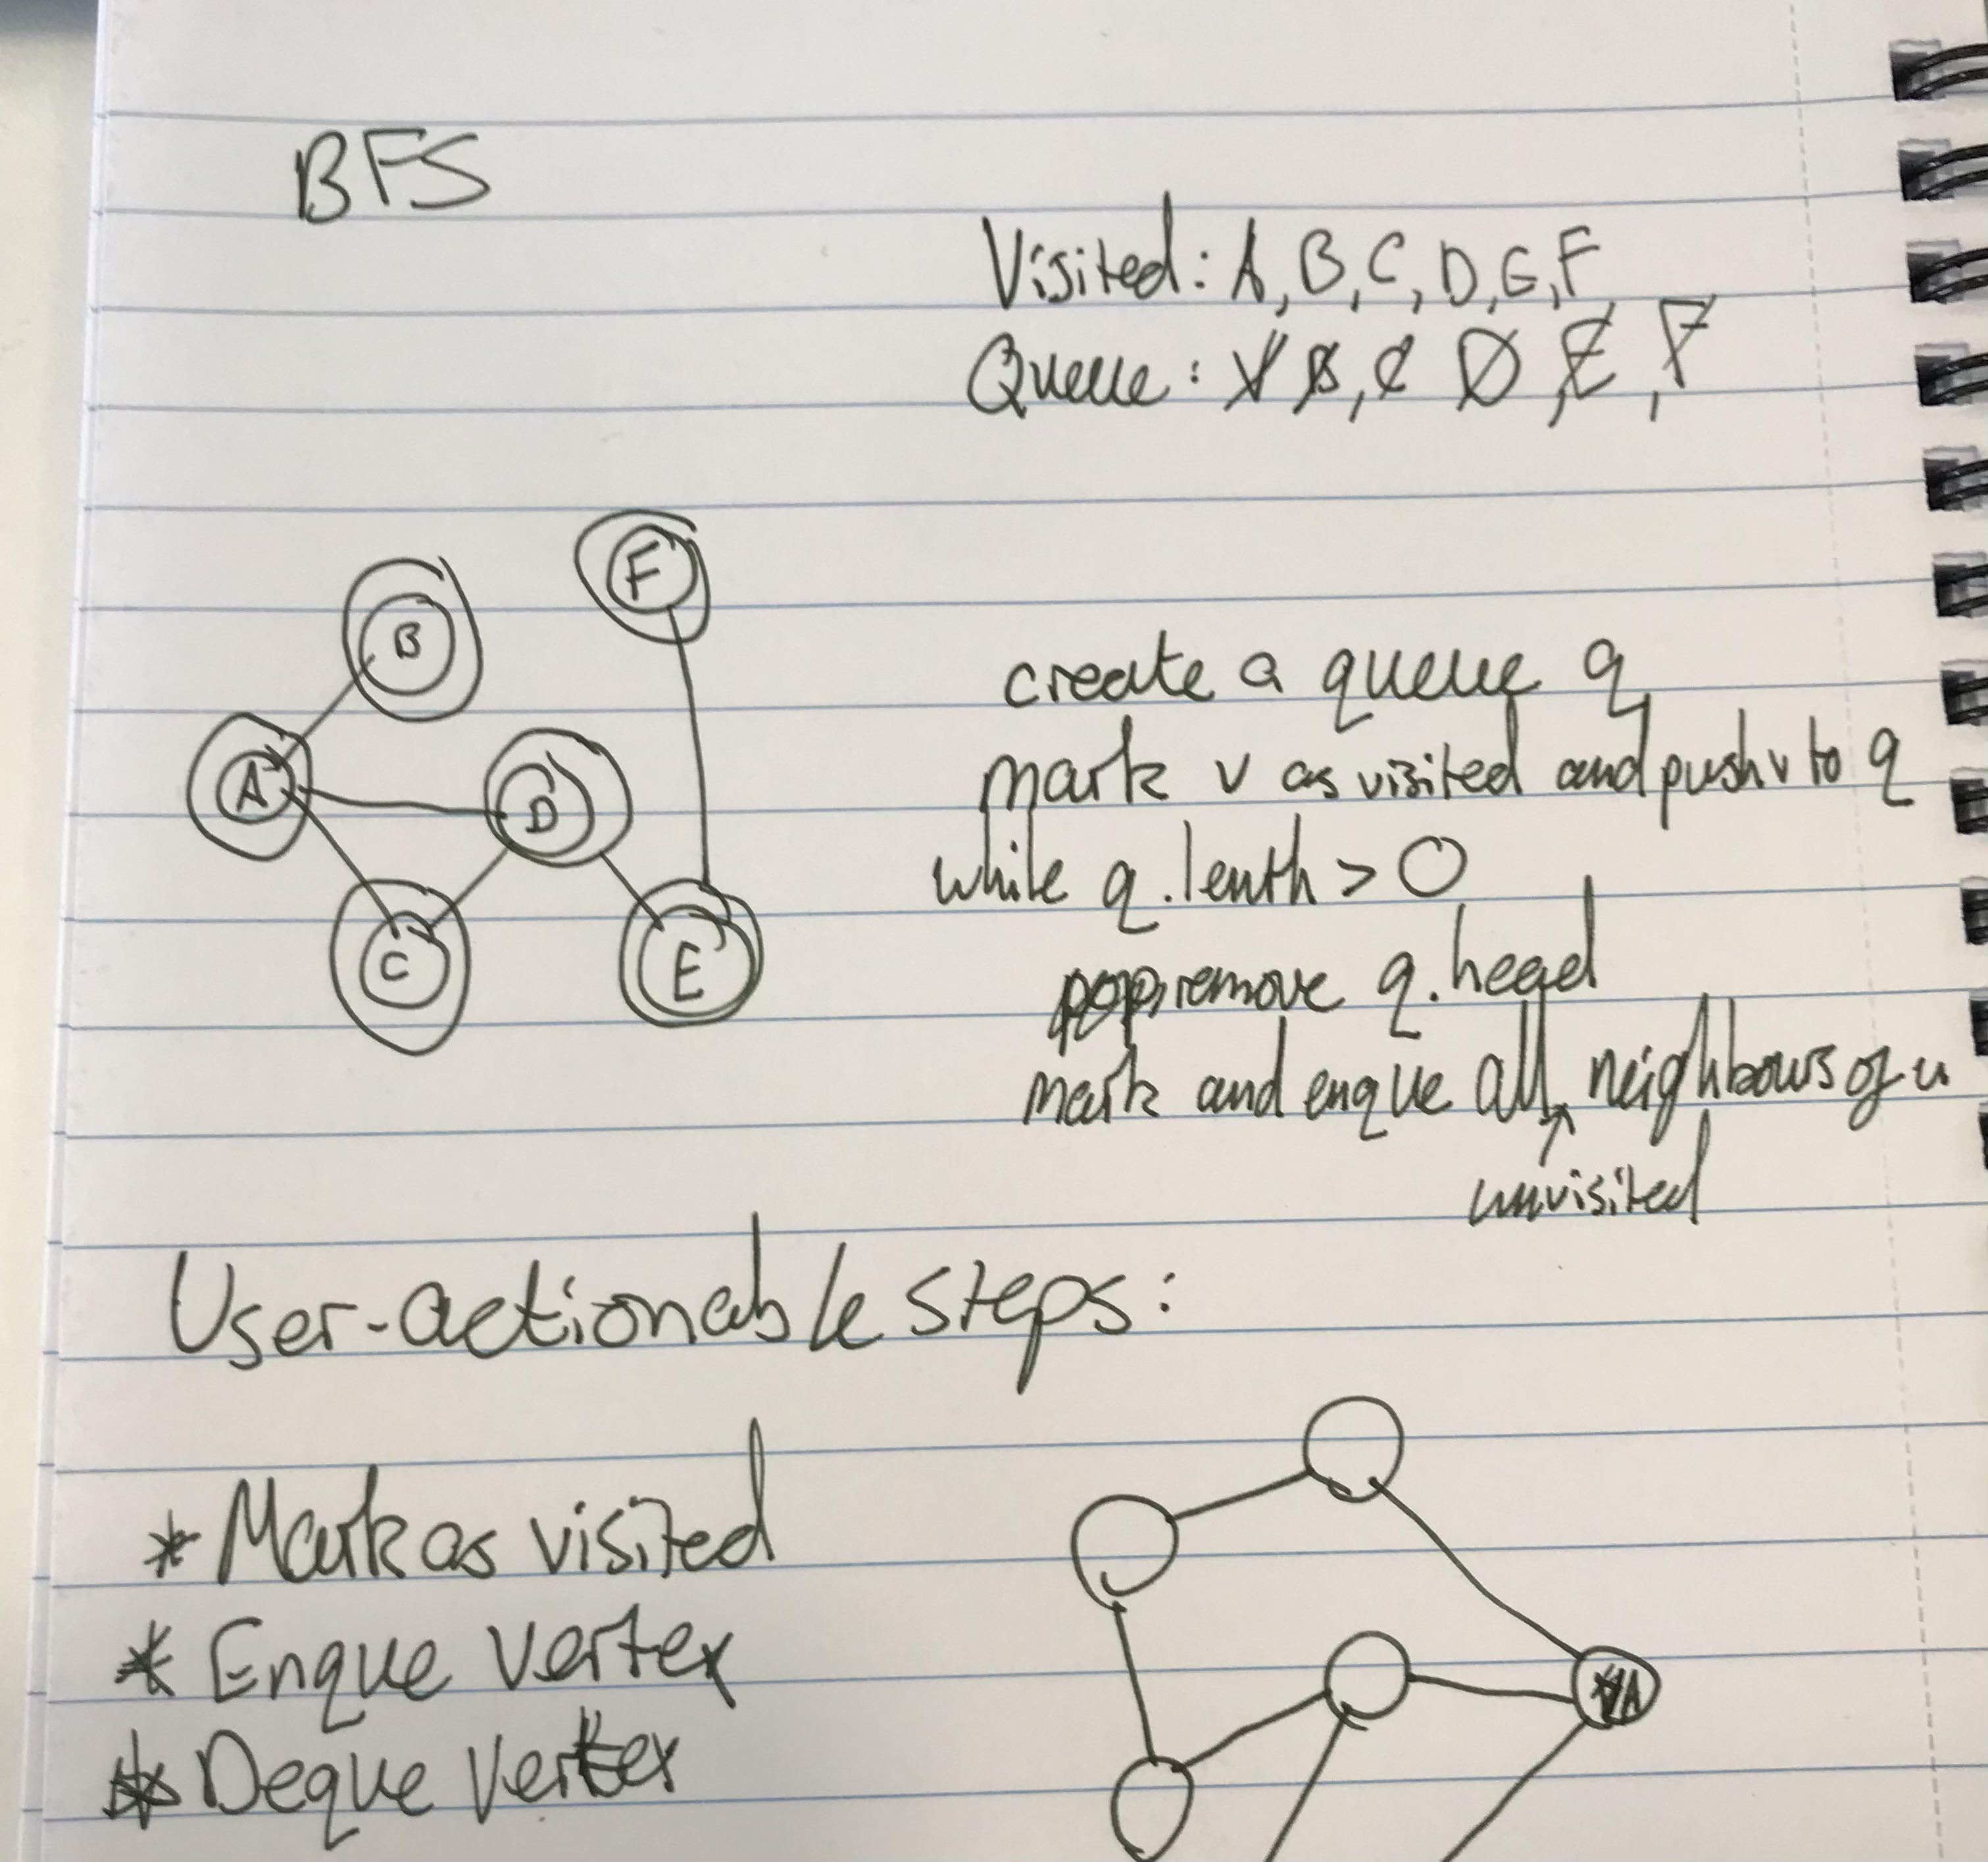 BFS
Visited: A, B, C, D, E, F
Queue: B, C D, E, F
B
F
A
D
C
E
create a queue q
mark v as visited and push v to q
while q.lenth > 0
remove q.head
mark and enque all neighbours of u
unvisited
User-actionable steps:
* Mark as visited
* Enque vertex
* Deque vertex
A